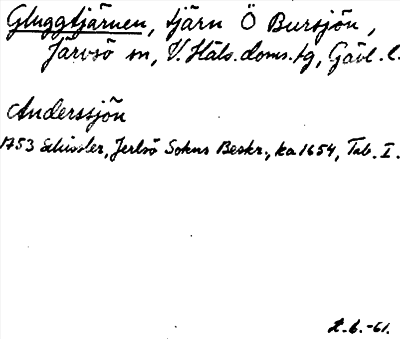 Gluggtjärnen, tjärn Ö Bursjön,
Järvsö sn, V. Häls. doms. tg, Gävl. l.
Anderssjön
1753 Schissler, Jerlsö Sokns Beskr., ka 1654, Tab. I.
-61.